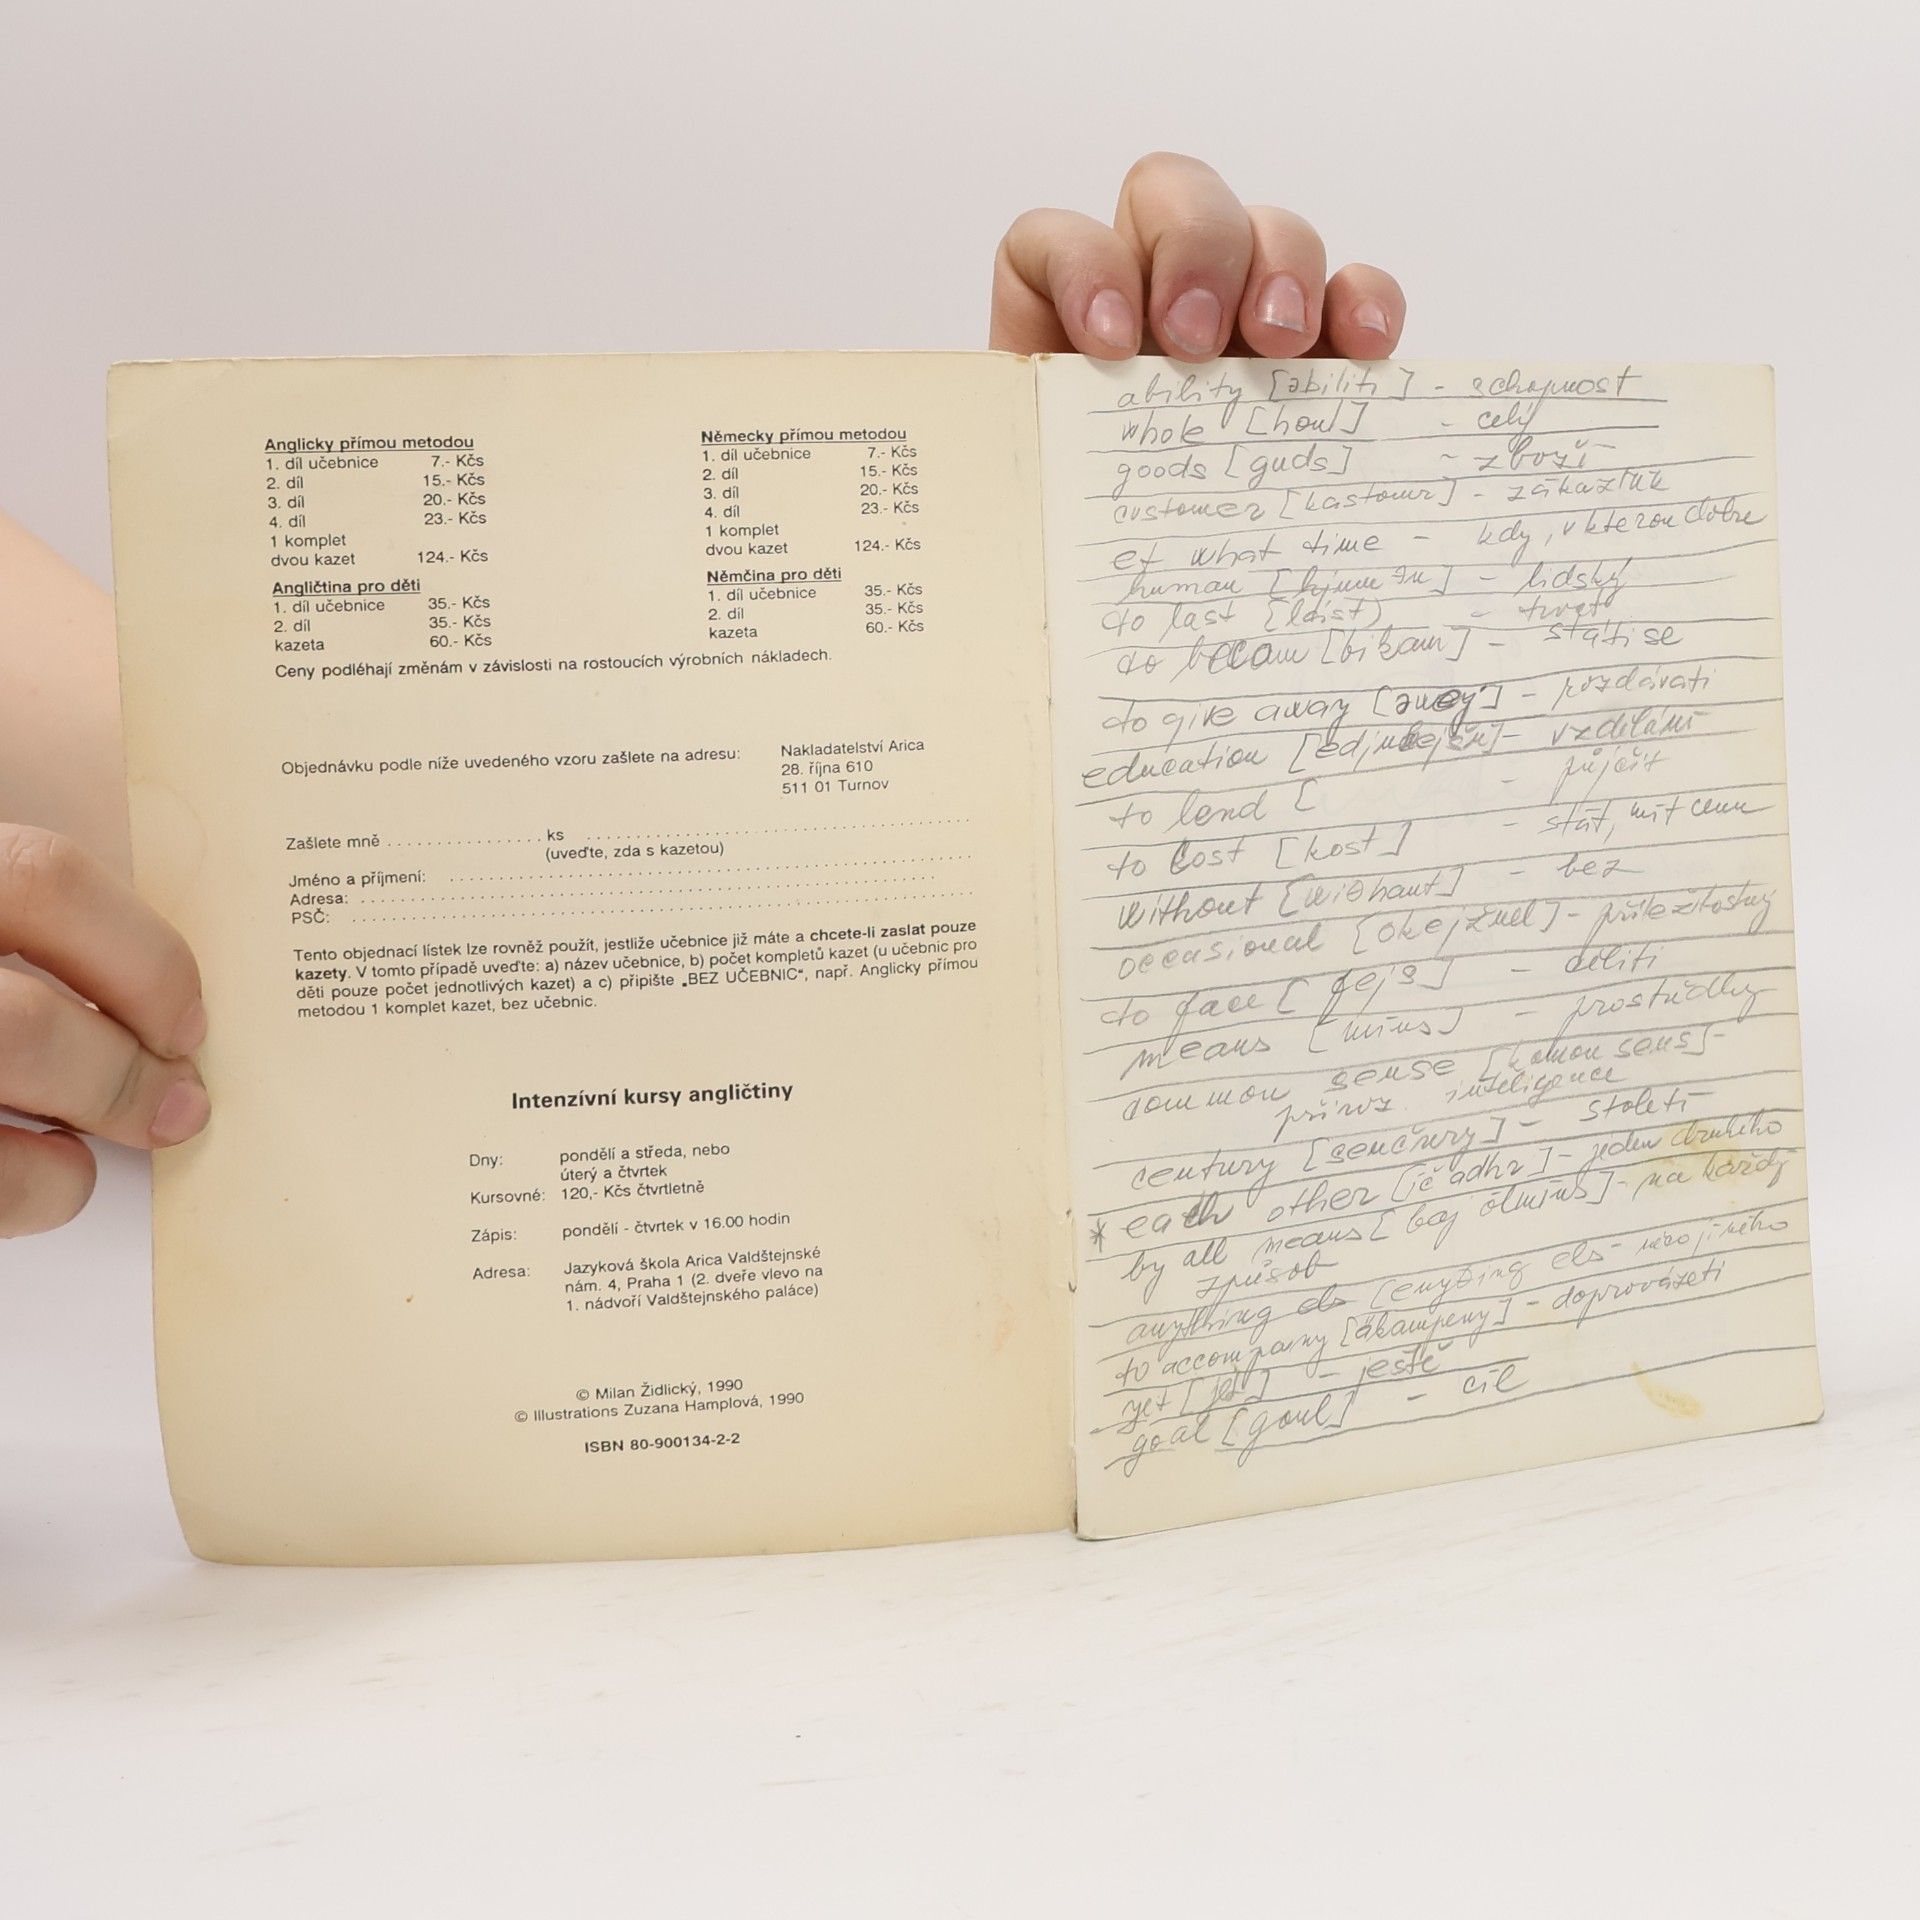 Anglicky přímou metodou
1. díl učebnice 7.- Kčs
2. díl 15.- Kčs
3. díl 20.- Kčs
4. díl 23.- Kčs
1 komplet
dvou kazet 124.- Kčs
Angličtina pro děti
1. díl učebnice 35.- Kčs
2. díl 35.- Kčs
kazeta 60.- Kčs
Německy přímou metodou
1. díl učebnice 7.- Kčs
2. díl 15.- Kčs
3. díl 20.- Kčs
4. díl 23.- Kčs
1 komplet
dvou kazet 124.- Kčs
Němčina pro děti
1. díl učebnice 35.- Kčs
2. díl 35.- Kčs
kazeta 60.- Kčs
Ceny podléhají změnám v závislosti na rostoucích výrobních nákladech.
Objednávku podle níže uvedeného vzoru zašlete na adresu: Nakladatelství Arica
28. října 610
511 01 Turnov
Zašlete mně ................ ks ................
(uveďte, zda s kazetou)
Jméno a příjmení: ................
Adresa: ................
PSČ: ................
Tento objednací lístek lze rovněž použít, jestliže učebnice již máte a chcete-li zaslat pouze
kazety. V tomto případě uveďte: a) název učebnice, b) počet kompletů kazet (u učebnic pro
děti pouze počet jednotlivých kazet) a c) připište „BEZ UČEBNIC“, např. Anglicky přímou
metodou 1 komplet kazet, bez učebnic.
Intenzívní kursy angličtiny
Dny: pondělí a středa, nebo
úterý a čtvrtek
Kursovné: 120,- Kčs čtvrtletně
Zápis: pondělí - čtvrtek v 16.00 hodin
Adresa: Jazyková škola Arica Valdštejnské
nám. 4, Praha 1 (2. dveře vlevo na
1. nádvoří Valdštejnského paláce)
© Milan Židlický, 1990
© Illustrations Zuzana Hamplová, 1990
ISBN 80-900134-2-2
ability [əbiliti] - schopnost
whole [houl] - celý
goods [guds] - zboží
customer [kastomr] - zákazník
et what time - kdy, v kterou dobu
human [hjumən] - lidský
to last [lást) - trvat
to becam [bikam] - státi se
to give away [əwej] - rozdávati
education [edjukejšn] - vzdělání
to lend [ - půjčit
to cost [kost] - stát, mít cenu
without [widhaut] - bez
occasional [okejžnl] - příležitostný
to face [fejs] - čeliti
means [míns] - prostředky
common sense [komon sens] -
přiroz. inteligence
century [senčury] - století
* each other [íč adhr] - jeden druhého
by all means [baj ólmíns] - na každý
způsob
anything els [enything els - něco jiného
to accompany [əkampeny] - doprovázeti
yet [jet] - ještě
goal [goul] - cíl